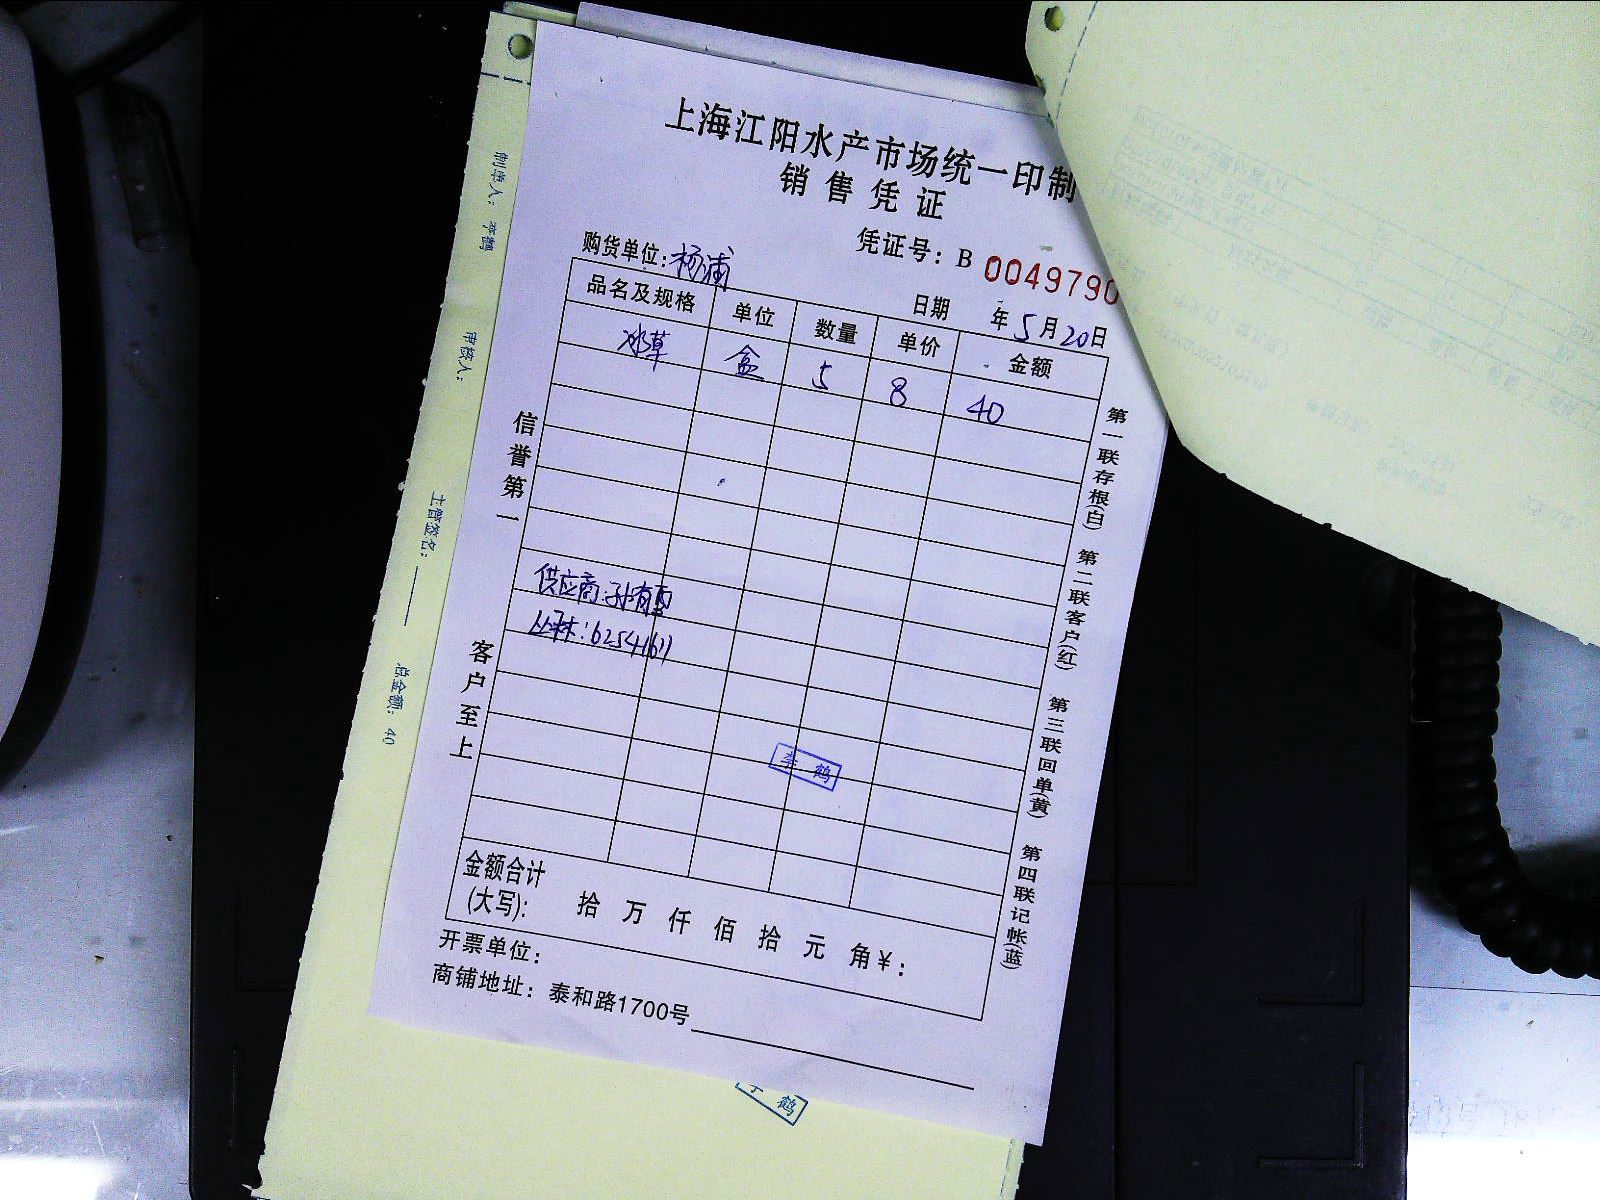 上海江阳水产市场统一印制
销售凭证
凭证号：B 0049790
购货单位：杨浦
日期 年5月20日
品名及规格 单位 数量 单价 金额
冰草 盒 5 8 40
供应商：孙有雪
丛林：62541611
李鹤
信誉第一
客户至上
金额合计
(大写)： 拾 万 仟 佰 拾 元 角 ¥：
开票单位：
商铺地址：泰和路1700号
第一联存根(白) 第二联客户(红) 第三联回单(黄) 第四联记帐(蓝)
制单人：李鹤
审核人：
主管签名：
总金额：40
李 鹤